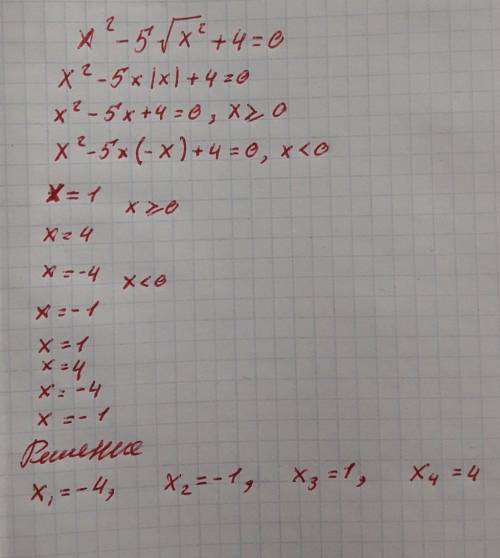 x² - 5√x² + 4 = 0
x² - 5x|x| + 4 = 0
x² - 5x + 4 = 0, x ≥ 0
x² - 5x(-x) + 4 = 0, x < 0
x = 1
x ≥ 0
x = 4
x = -4
x < 0
x = -1
x = 1
x = 4
x = -4
x = -1
Решение
x₁ = -4, x₂ = -1, x₃ = 1, x₄ = 4